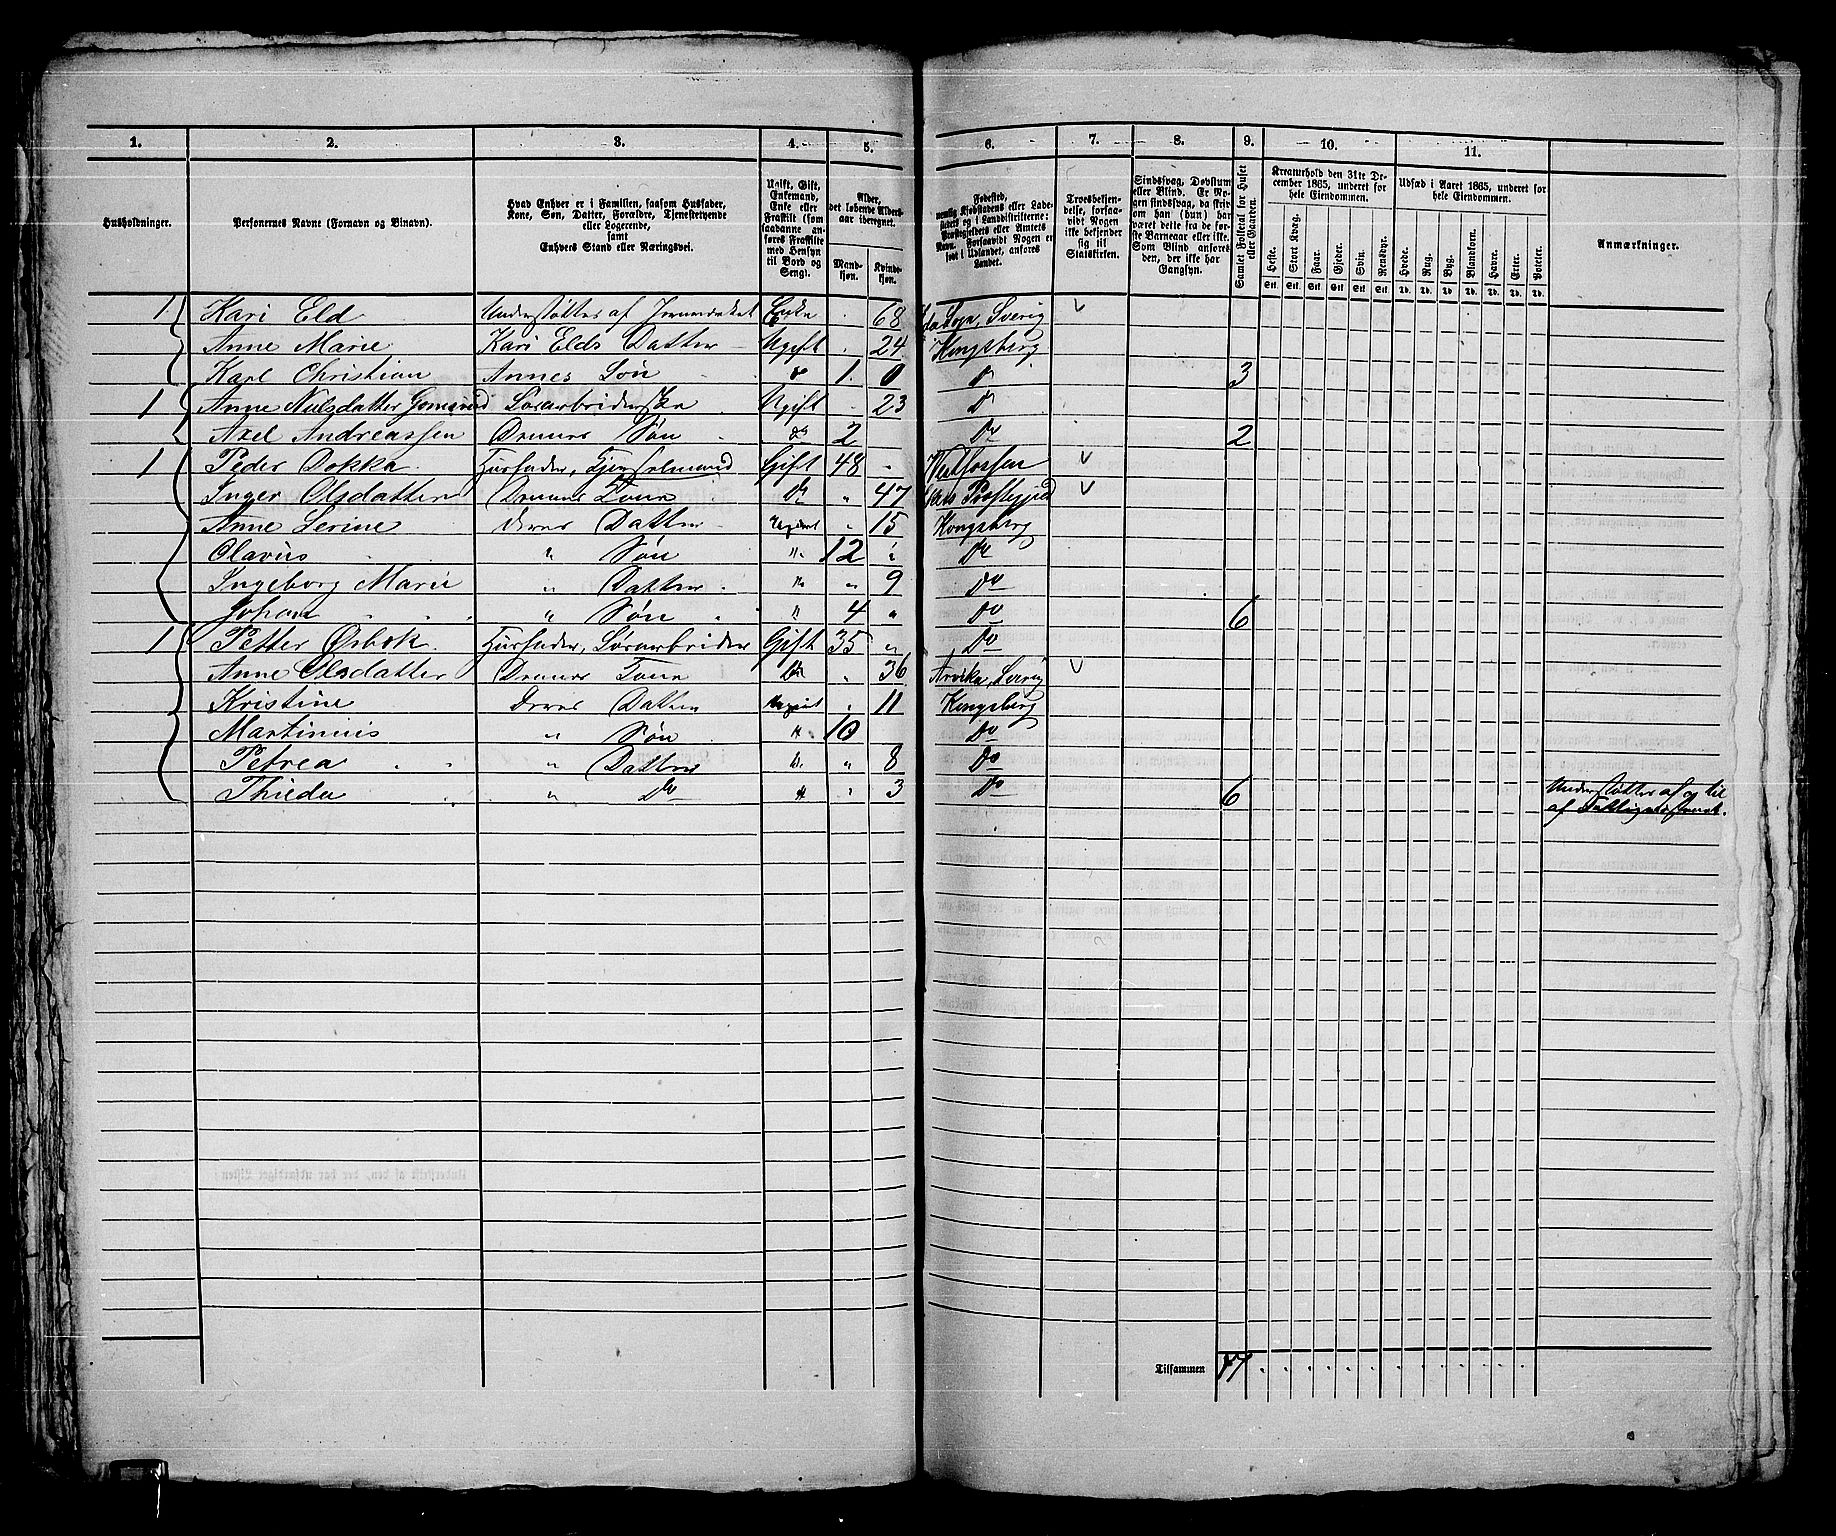 1. 2. 3. 4. 5. 6. 7. 8. 9. 10. 11.
Husholdninger.
Personernes Navne (Fornavn og Tilnavn).
Hvad Enhver er i Familien, saasom Husfader, Kone, Søn, Datter, Forældre, Tjenestetyende eller Logerende, samt Enhvers Stand eller Næringsvei.
Ugift, Gift, Enkemand, Enke eller Fraskilt (som saadanne anføres Fraskilte med Hensyn til Bord og Seng).
Alder, det løbende Aldersaar iberegnet.
Mandkjøn. Kvindekjøn.
Fødested, nemlig Kjøbstadens eller Ladestedets og i Landdistrikterne: Præstegjeldets eller Amtets Navn. Forsaavidt Nogen er født i Udlandet, anføres Landet.
Troesbekjendelse, forsaavidt Nogen ikke bekjender sig til Statskirken.
Sindssvag, Døvstum eller Blind. Er Nogen sindssvag, da skrives om han (hun) har været dette fra de første Barneaar eller ikke. Som Blind anføres den, der ikke har Gangsyn.
Samlet Folketal for Huset eller Gaarden.
Kreaturhold den 31te December 1865, underet for hele Eiendommen.
Heste. Stort Kvæg. Faar. Gjeder. Svin. Rensdyr.
Udsæd i Aaret 1865, underet for hele Eiendommen.
Hvede. Rug. Byg. Blandkorn. Havre. Erter. Poteter.
Stk. Stk. Stk. Stk. Stk. Stk. Td. Td. Td. Td. Td. Td. Td.
Anmærkninger.
1 Kari Eld Understøttes af Jernværket Enke 68 Sverig
Anne Marie Kari Elds Datter Ugift 24 Kongsberg
Karl Christian Annes Søn do 1 0 do 3
1 Anne Nielsdatter Løsarbeiderske Ugift 23 do
Axel Andreassen Drenes Søn do 2 do 2
1 Peder Dokka Husfader, Gift 48 Vestfossen
Inger Olsdatter Drenes Kone do 47 Præstegjeld
Anne Serine deres Datter Ugift 15 Kongsberg
Olavus " Søn " 12 do
Ingeborg Marie " Datter " " 9 do
Johan " Søn " 4 " do 6
1 Petter Øsbok Husfader, Løsarbeider Gift 35 " do
Anne Olsdatter Drenes Kone do " 36 Arvika, Sverig
Kristine deres Datter Ugift " 11 Kongsberg
Martinius " Søn " 10 do
Petrea " Datter " " 8 do
Thieda " do " " 3 do 6 Understøttes af og til
af Fattigvæsenet.
Tilsammen 17